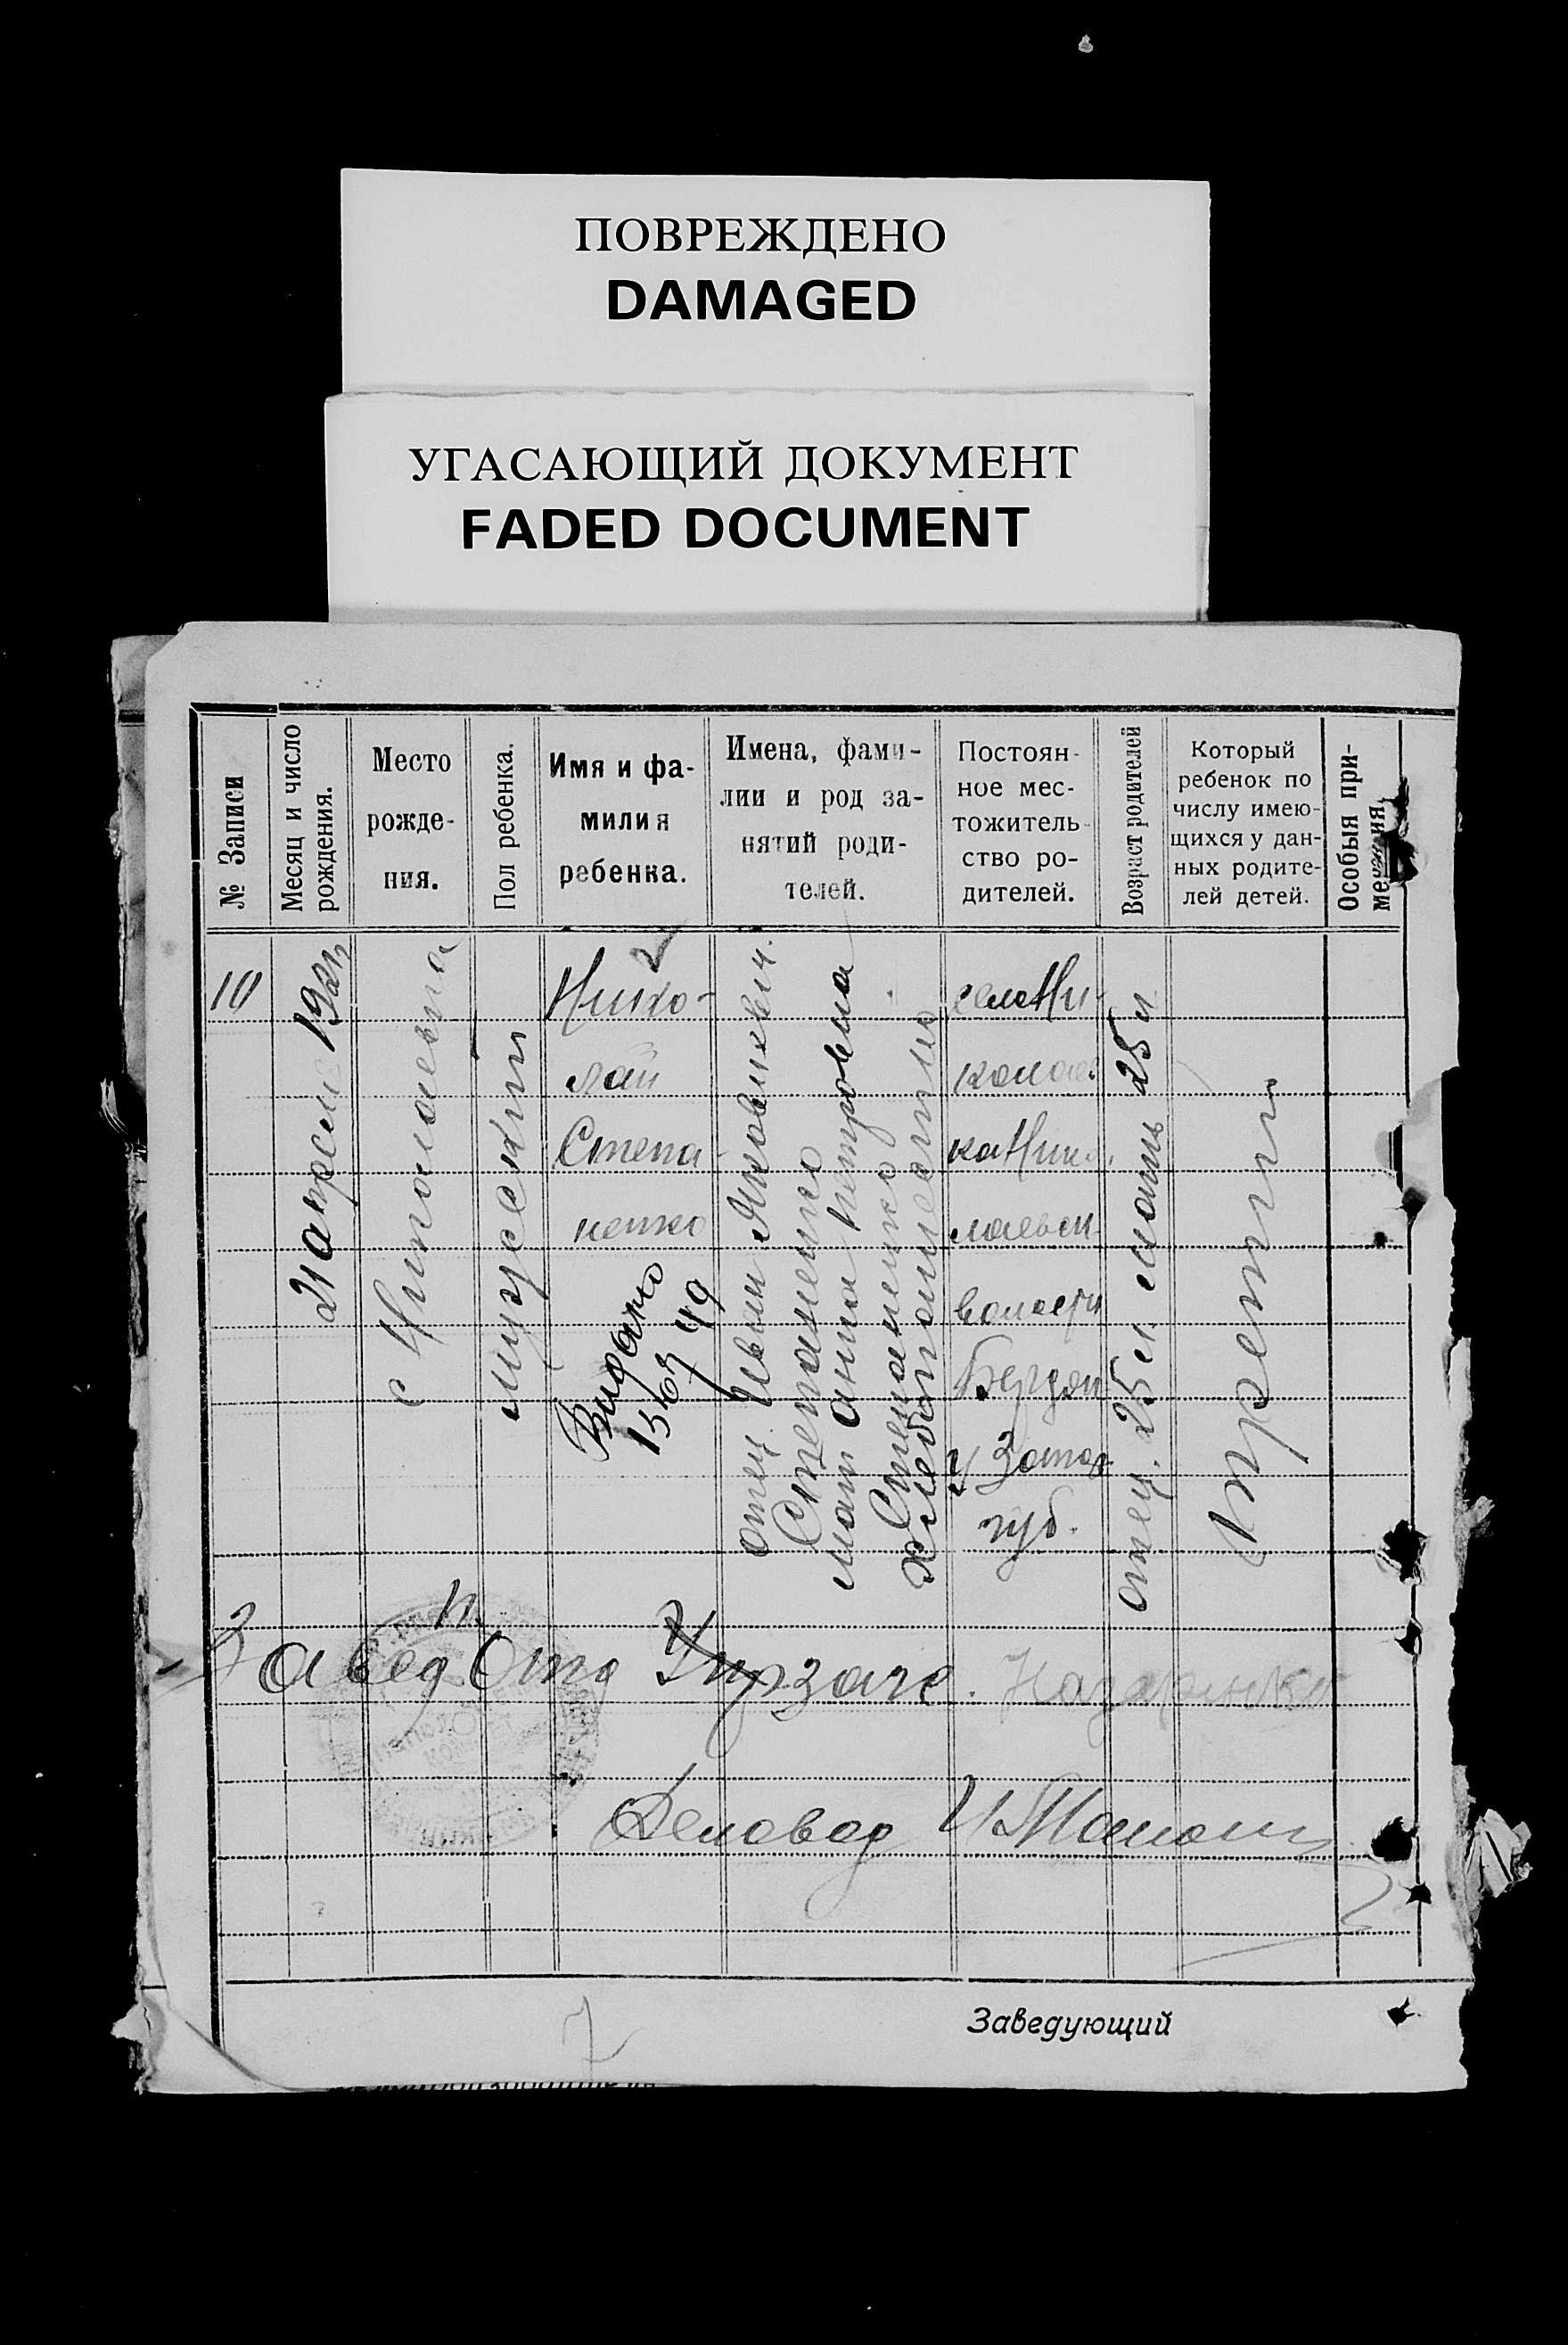 ПОВРЕЖДЕНО
DAMAGED
УГАСАЮЩИЙ ДОКУМЕНТ
FADED DOCUMENT
№ Записи
Месяц и число
рождения.
Место
рожде-
ния.
Пол ребенка.
Имя и фа-
милия
ребенка.
Имена, фами-
лии и род за-
нятий роди-
телей.
Постоян-
ное мес-
тожитель-
ство ро-
дителей.
Возраст родителей
Который
ребенок по
числу имею-
щихся у дан-
ных родите-
лей детей.
Особыя при-
мечания.
10
21 апреля
с Николаевка
мужский
Нико-
лай
Степа-
ненко
Видано
15/67 49
отец Иван Яковлевич.
Степаненко
мать анна петровна
Степаненко
хлебопашество
села Ни-
колаев
ка Нико
лаевск
волости
Бердян
у Запор
губ.
отец. 25 л. мать 25 л
третий
п.
Завед Отд загс. Назаренко
Деловод И
7
Заведующий